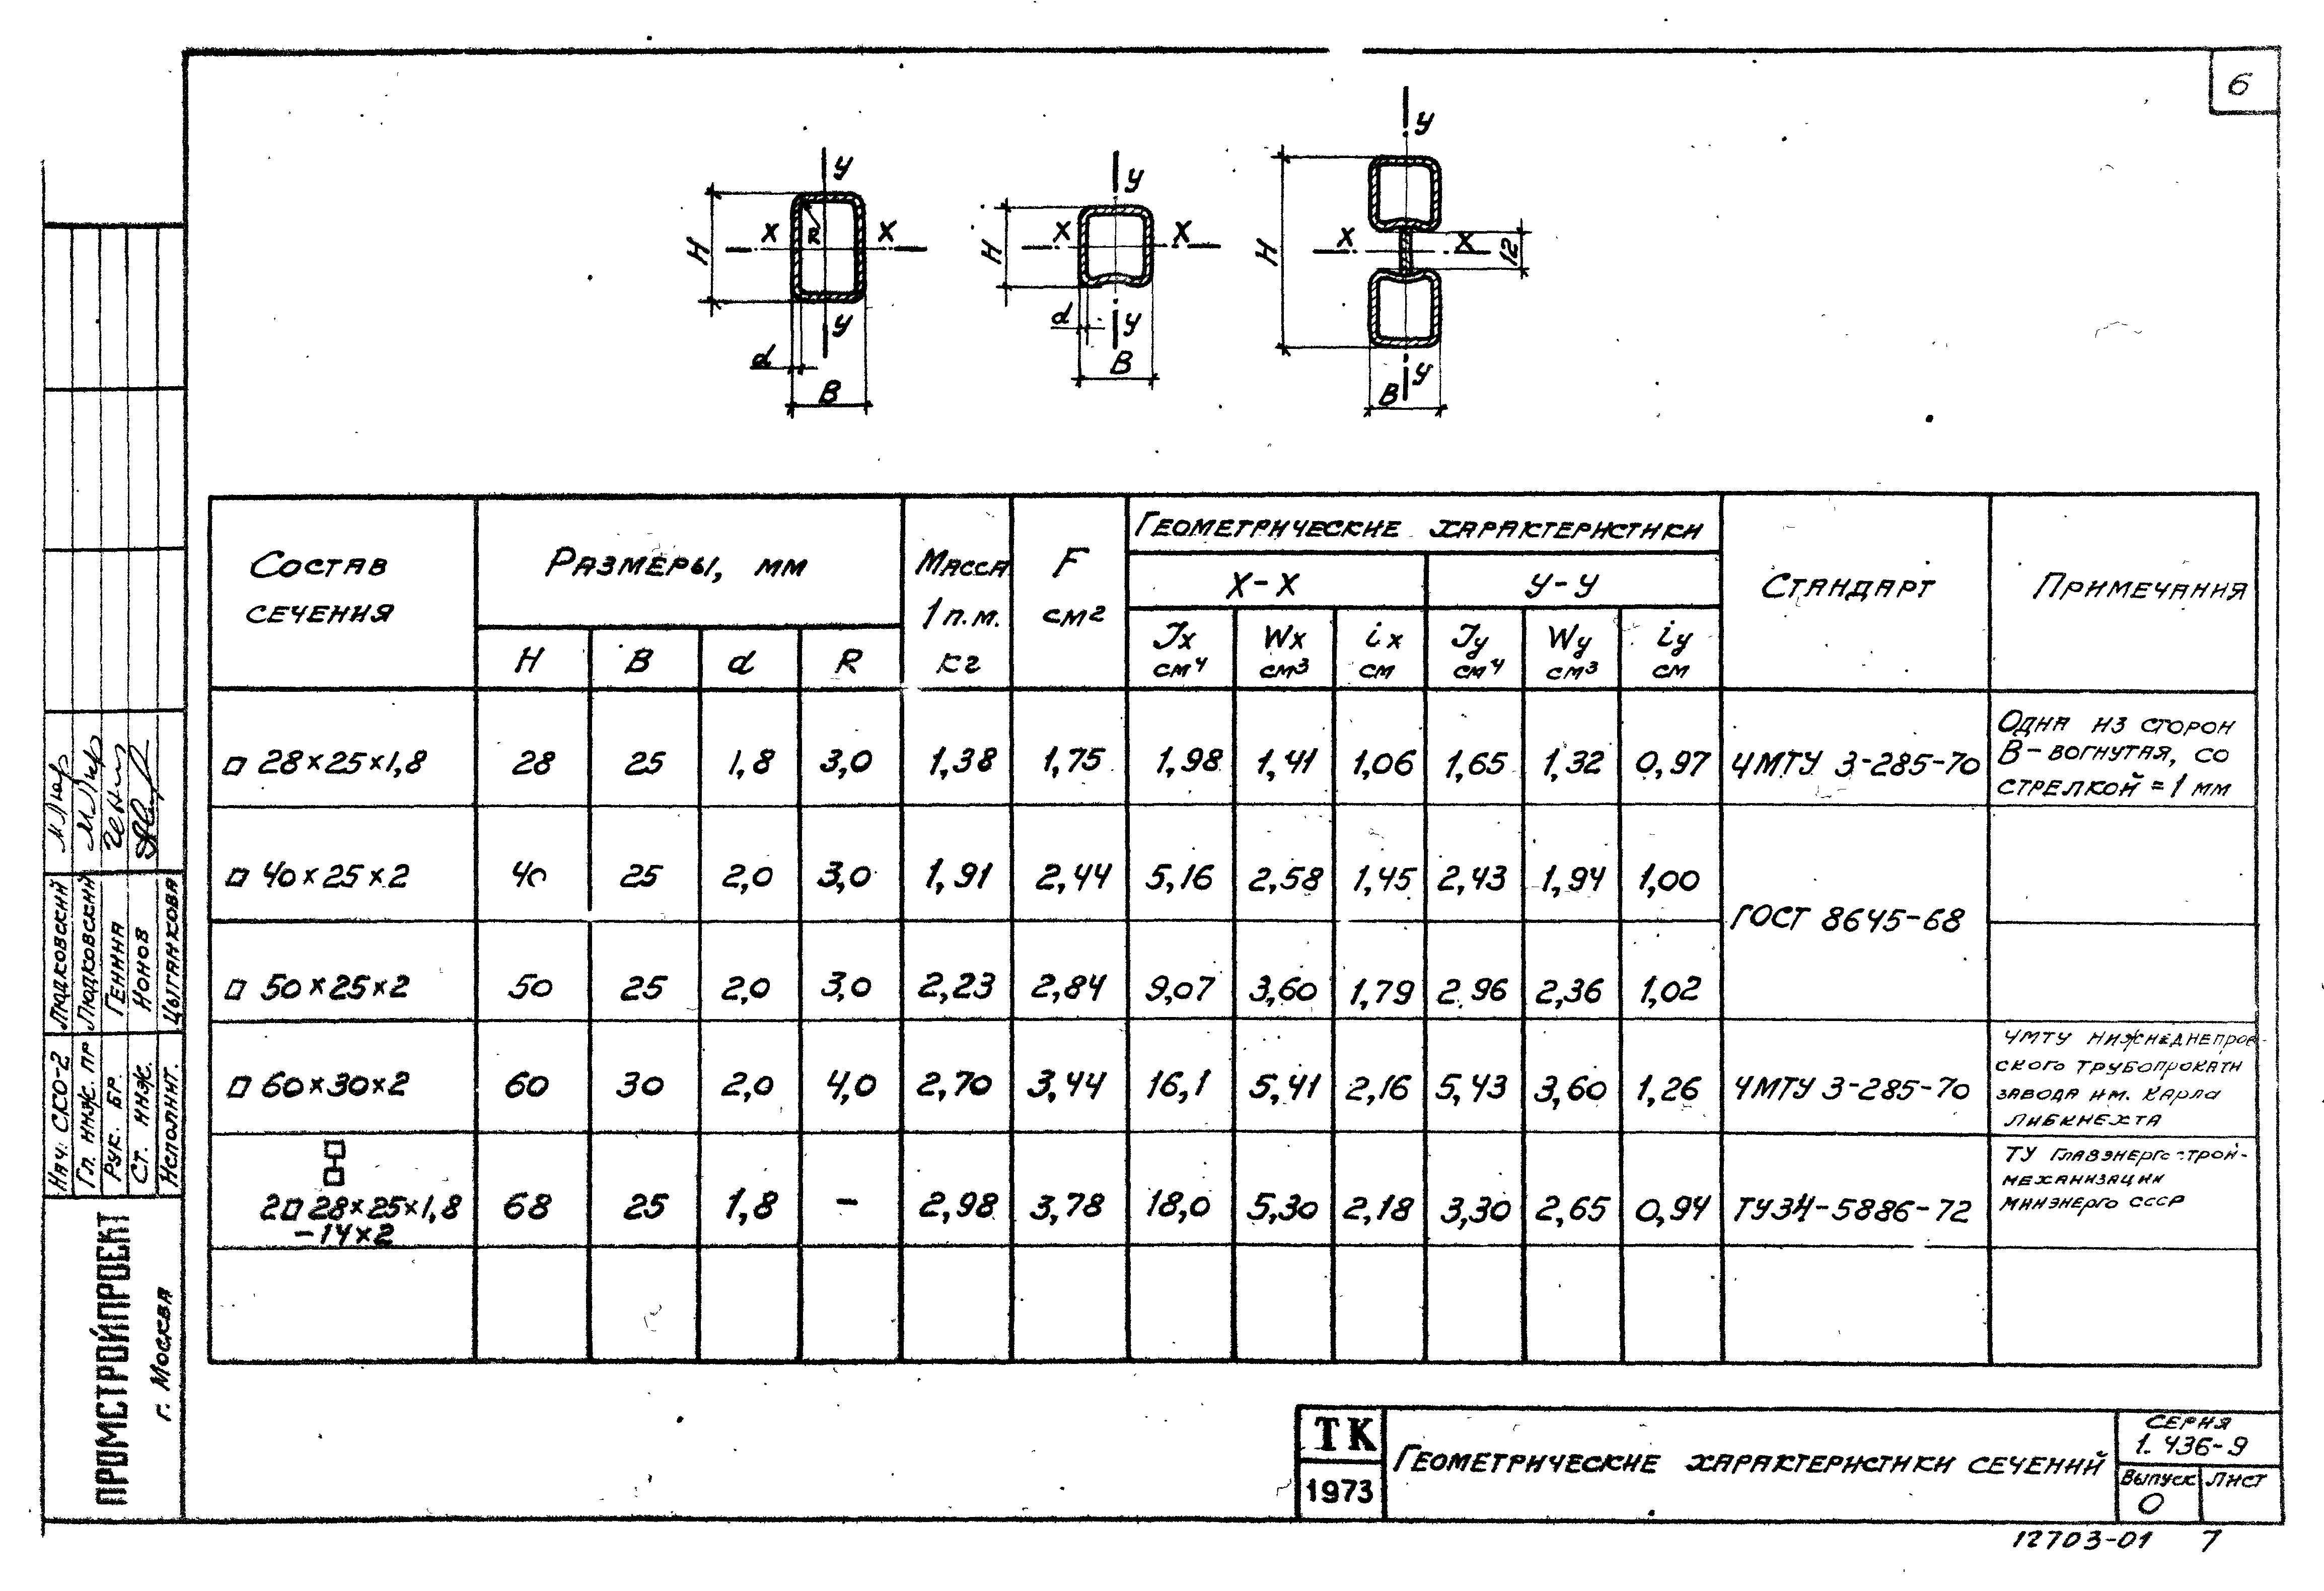 6
У
Х
R
Х
Н
У
d
В
У
Х
Х
Н
d
У
В
У
Х
Х
Н
12
В
У
Состав сечения
Размеры, мм
Масса 1 п.м. кг
F см2
Геометрические характеристики
Х-Х
У-У
Стандарт
Примечания
H B d R
Jx см⁴ Wx см³ ix см Jу см⁴ Wу см³ iу см
□ 28×25×1,8 28 25 1,8 3,0 1,38 1,75 1,98 1,41 1,06 1,65 1,32 0,97 ЧМТУ 3-285-70
Одна из сторон
В-вогнутая, со
стрелкой = 1 мм
□ 40×25×2 40 25 2,0 3,0 1,91 2,44 5,16 2,58 1,45 2,43 1,94 1,00
ГОСТ 8645-68
□ 50×25×2 50 25 2,0 3,0 2,23 2,84 9,07 3,60 1,79 2.96 2,36 1,02
□ 60×30×2 60 30 2,0 4,0 2,70 3,44 16,1 5,41 2,16 5,43 3,60 1,26 ЧМТУ 3-285-70
ЧМТУ Нижнеднепров-
ского трубопрокатн
завода им. Карла
Либкнехта
2□ 28×25×1,8 68 25 1,8 - 2,98 3,78 18,0 5,30 2,18 3,30 2,65 0,94 ТУ34-5886-72
-14×2
ТУ Главэнергострой-
механизации
Минэнерго СССР
Нач. СКО-2 Людковский
Гл. инж. пр Людковский
Рук. бр. Генина
Ст. инж. Нонов
Исполнит. Цыганкова
ПРОМСТРОЙПРОЕКТ
г. Москва
ТК
1973
Геометрические характеристики сечений
Серия
1. 436-9
Выпуск Лист
0
12703-01 7